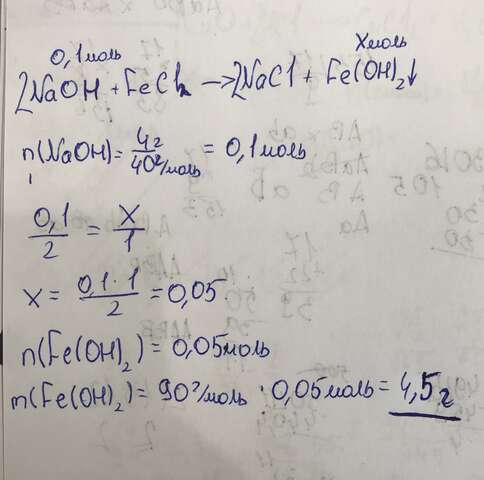 0,1моль Xмоль
2NaOH + FeCl₂ → 2NaCl + Fe(OH)₂↓
n(NaOH) = 4г / 40г/моль = 0,1моль
0,1 / 2 = x / 1
x = 0,1·1 / 2 = 0,05
n(Fe(OH)₂) = 0,05моль
m(Fe(OH)₂) = 90г/моль · 0,05моль = 4,5г